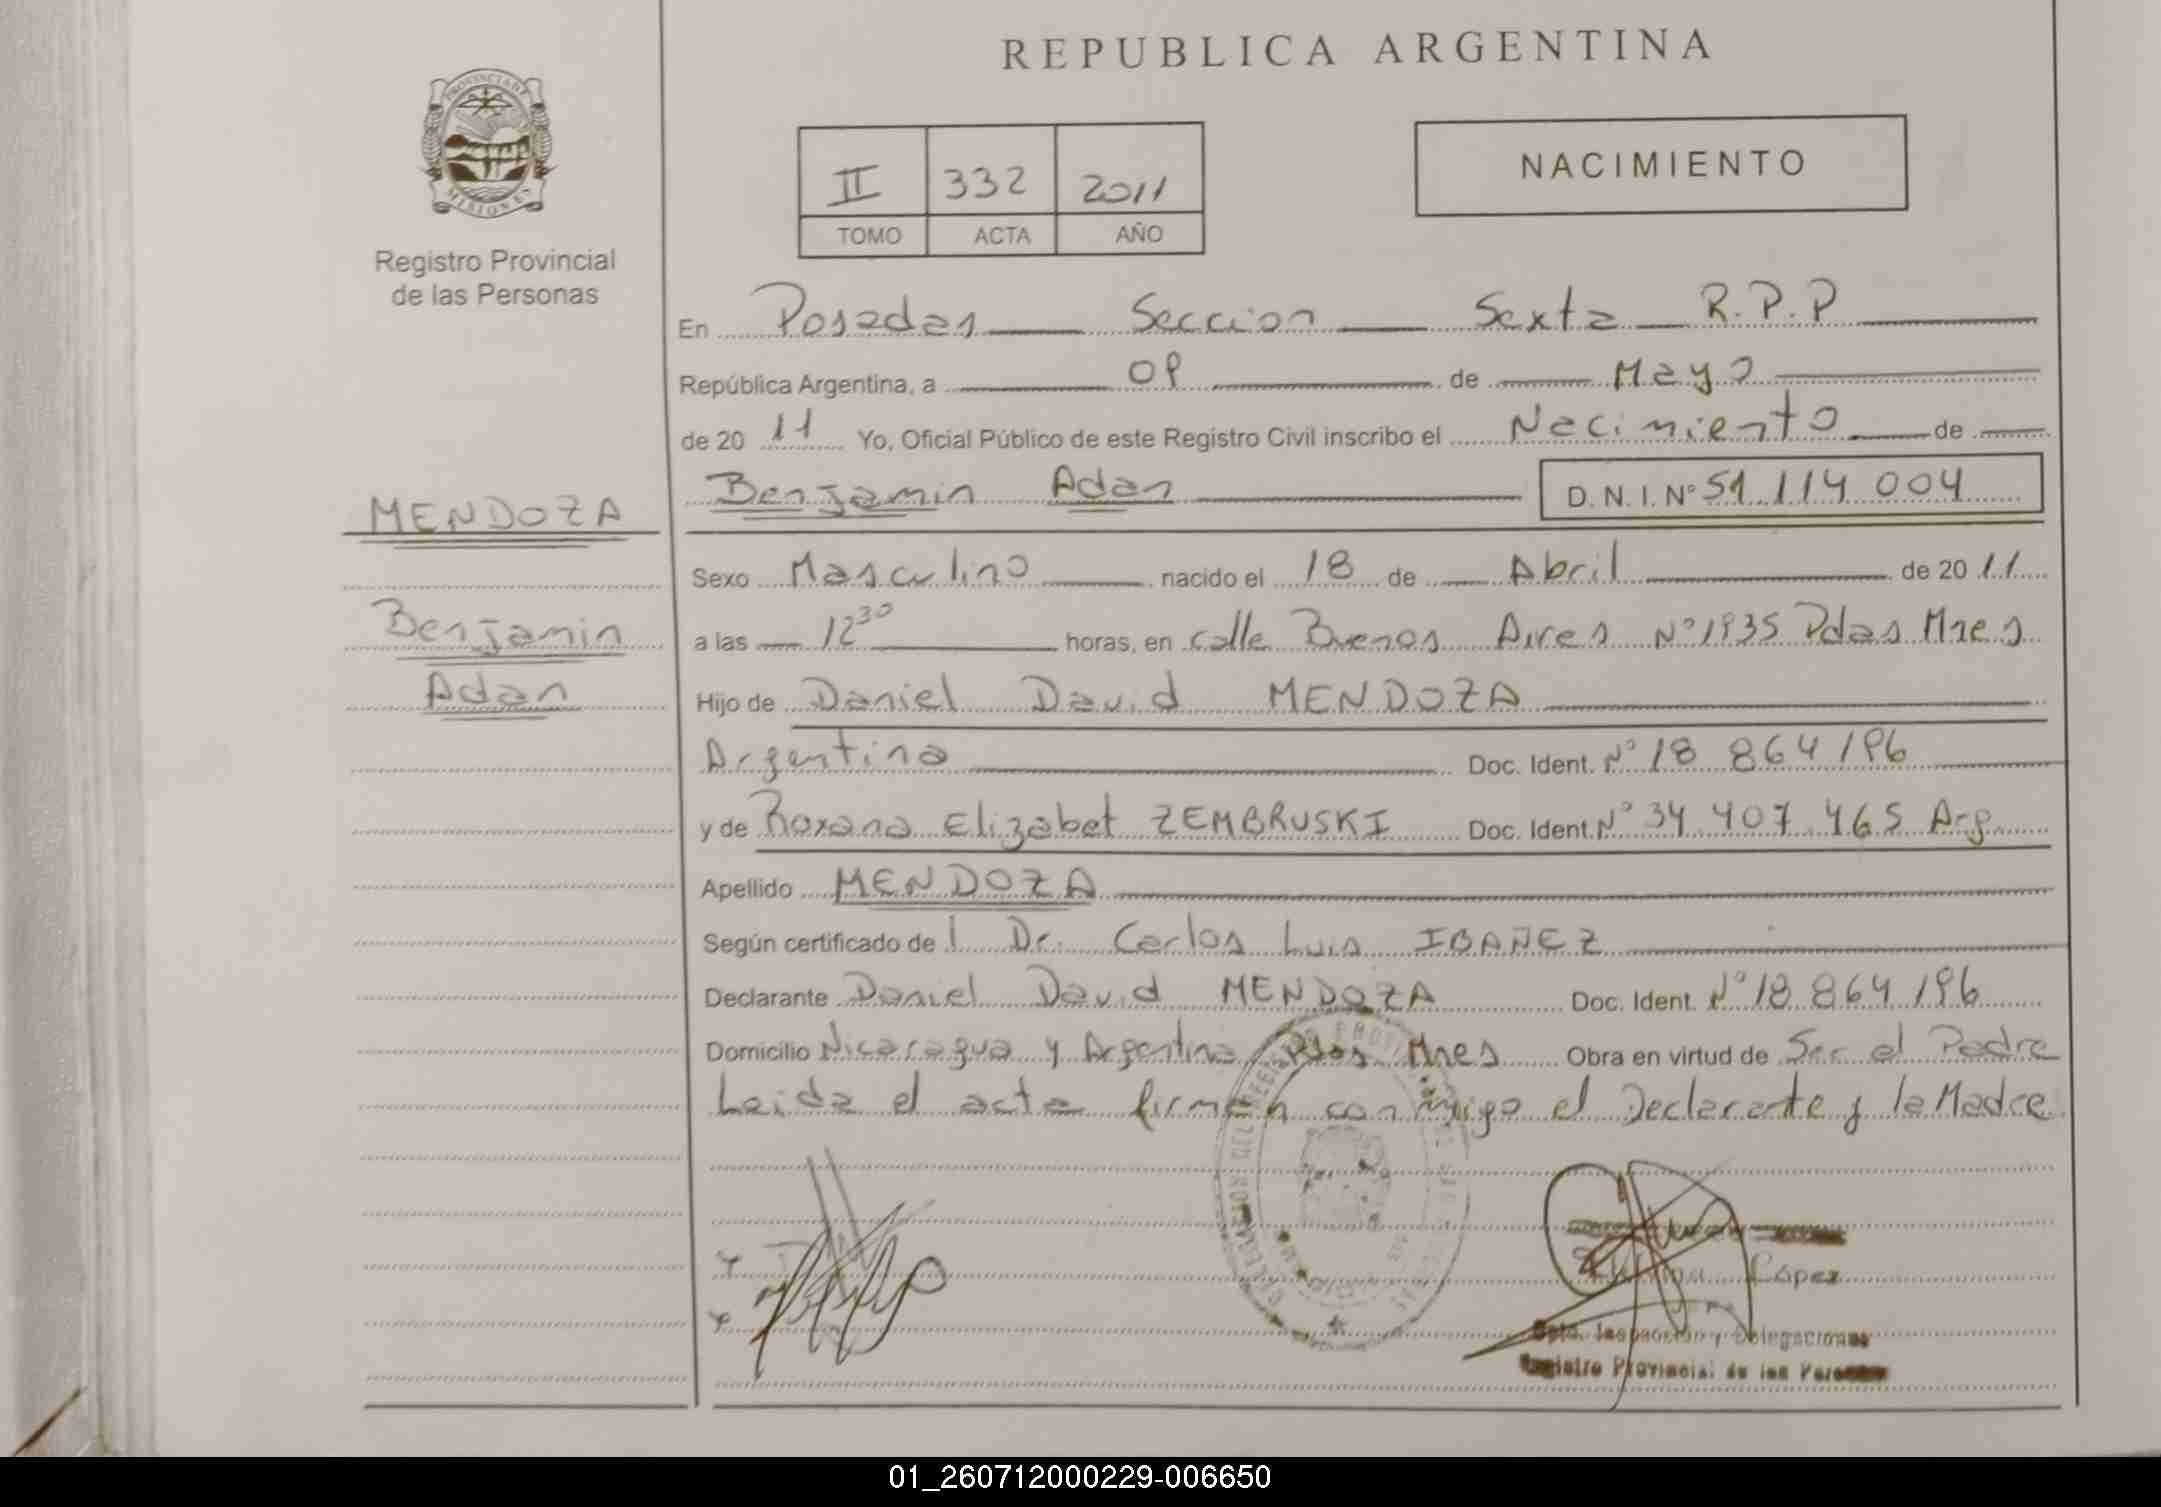 REPUBLICA ARGENTINA
PROVINCIA DE
MISIONES
Registro Provincial
de las Personas
II 332 2011
TOMO ACTA AÑO
NACIMIENTO
En Posadas Seccion Sexta R.P.P
República Argentina, a 09 de Mayo
de 20 11 Yo, Oficial Público de este Registro Civil inscribo el Nacimiento de
Benjamin Adan D.N.I. Nº 51 114 004
MENDOZA
Benjamin
Adan
Sexo Masculino nacido el 18 de Abril de 20 11
a las 12 30 horas, en calle Buenos Aires Nº 1935 Pdas Mnes
Hijo de Daniel David MENDOZA
Argentina Doc. Ident. Nº 18 864 196
y de Roxana Elizabet ZEMBRUSKI Doc. Ident. Nº 34 407 465 Arg
Apellido MENDOZA
Según certificado de l Dr. Carlos Luis IBAÑEZ
Declarante Daniel David MENDOZA Doc. Ident. Nº 18 864 196
Domicilio Nicaragua y Argentina Pdas Mnes Obra en virtud de Ser el Padre
Leida el acta firman conmigo el Declarante y la Madre
López
Dpto. Inspección y Delegaciones
Registro Provincial de las Personas
01_260712000229-006650